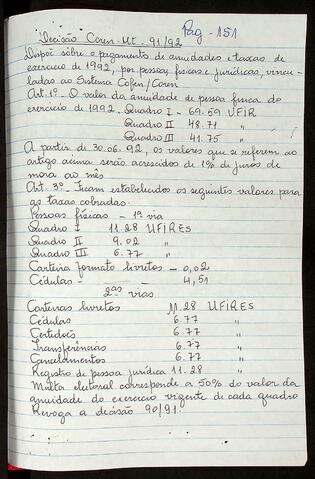 Pag - 151
Decisão Coren-Mt - 91/92
Dispõe sôbre o pagamento de anuidades e taxas de
exercício de 1992, por pessoas físicas e jurídicas, vincu-
ladas ao Sistema Cofen/Coren
Art. 1º - O valor da anuidade de pessoa física do
exercício de 1992. Quadro I - 69.59 UFIR
Quadro II 48.71 "
Quadro III 41.75 "
A partir de 30.06.92, os valores que se referem ao
artigo acima serão acrescidos de 1% de juros de
mora ao mês
Art. 3º - Ficam estabelecidos os seguintes valores para
as taxas cobradas.
Pessoas físicas - 1ª via
Quadro I 11.28 UFIRES
Quadro II 9.02 "
Quadro III 6.77 "
Carteira formato livretos - 0,02
Cédulas - - 4,51
2ªs vias
Carteiras livretos 11.28 UFIRES
Cédulas 6.77 "
Certidões 6.77 "
Transferências 6.77 "
Cancelamentos 6.77 "
Registro de pessoa jurídica 11.28 "
Multa eleitoral corresponde a 50% do valor da
anuidade do exercício vigente de cada quadro
Revoga a decisão 90/91